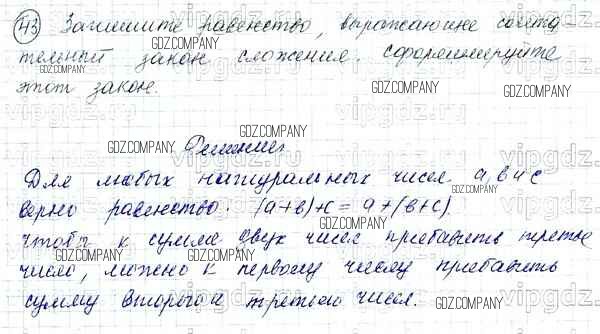 43 Запишите равенство, выражающие сочета
тельный закон сложения. сформулируйте
этот закон.
Решение
Для любых натуральных чисел а, в и с
верно равенство: (а+в)+с = а+(в+с).
чтобы к сумме двух чисел прибавить третье
число, можно к первому числу прибавить
сумму второго и третьего чисел.
GDZ.COMPANY
vipgdz.ru